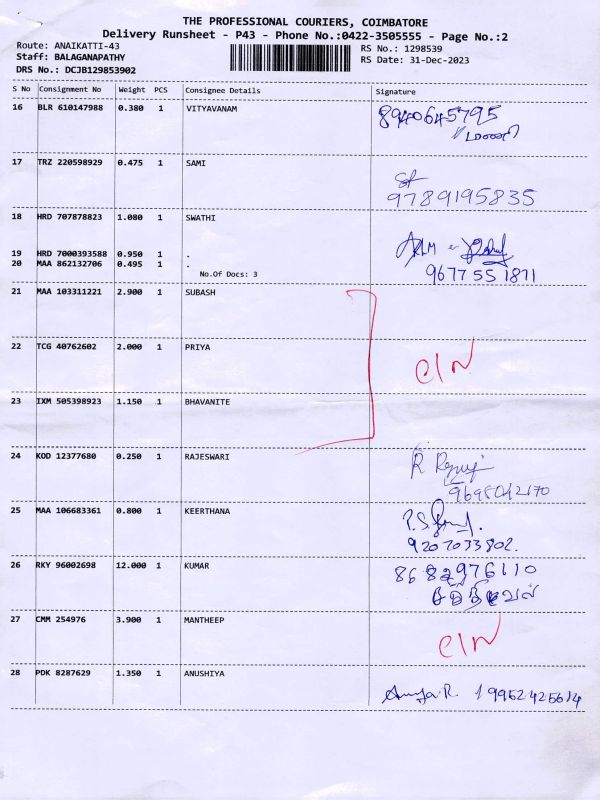 THE PROFESSIONAL COURIERS, COIMBATORE
Delivery Runsheet - P43 - Phone No.:0422-3505555 - Page No.:2
Route: ANAIKATTI-43
RS No.: 1298539
Staff: BALAGANAPATHY
RS Date: 31-Dec-2023
DRS No.: DCJB129853902
S No Consignment No Weight PCS Consignee Details Signature
16 BLR 610147988 0.380 1 VITYAVANAM 8940645795
17 TRZ 220598929 0.475 1 SAMI
9789195835
18 HRD 707878823 1.080 1 SWATHI
19 HRD 7000393588 0.950 1 .
20 MAA 862132706 0.495 1 .
No.Of Docs: 3
9677551871
21 MAA 103311221 2.900 1 SUBASH
22 TCG 40762602 2.000 1 PRIYA
23 IXM 505398923 1.150 1 BHAVANITE
24 KOD 12377680 0.250 1 RAJESWARI
25 MAA 106683361 0.800 1 KEERTHANA
9207033802.
26 RKY 96002698 12.000 1 KUMAR 8682976110
27 CMM 254976 3.900 1 MANTHEEP
28 PDK 8287629 1.350 1 ANUSHIYA
9952425614